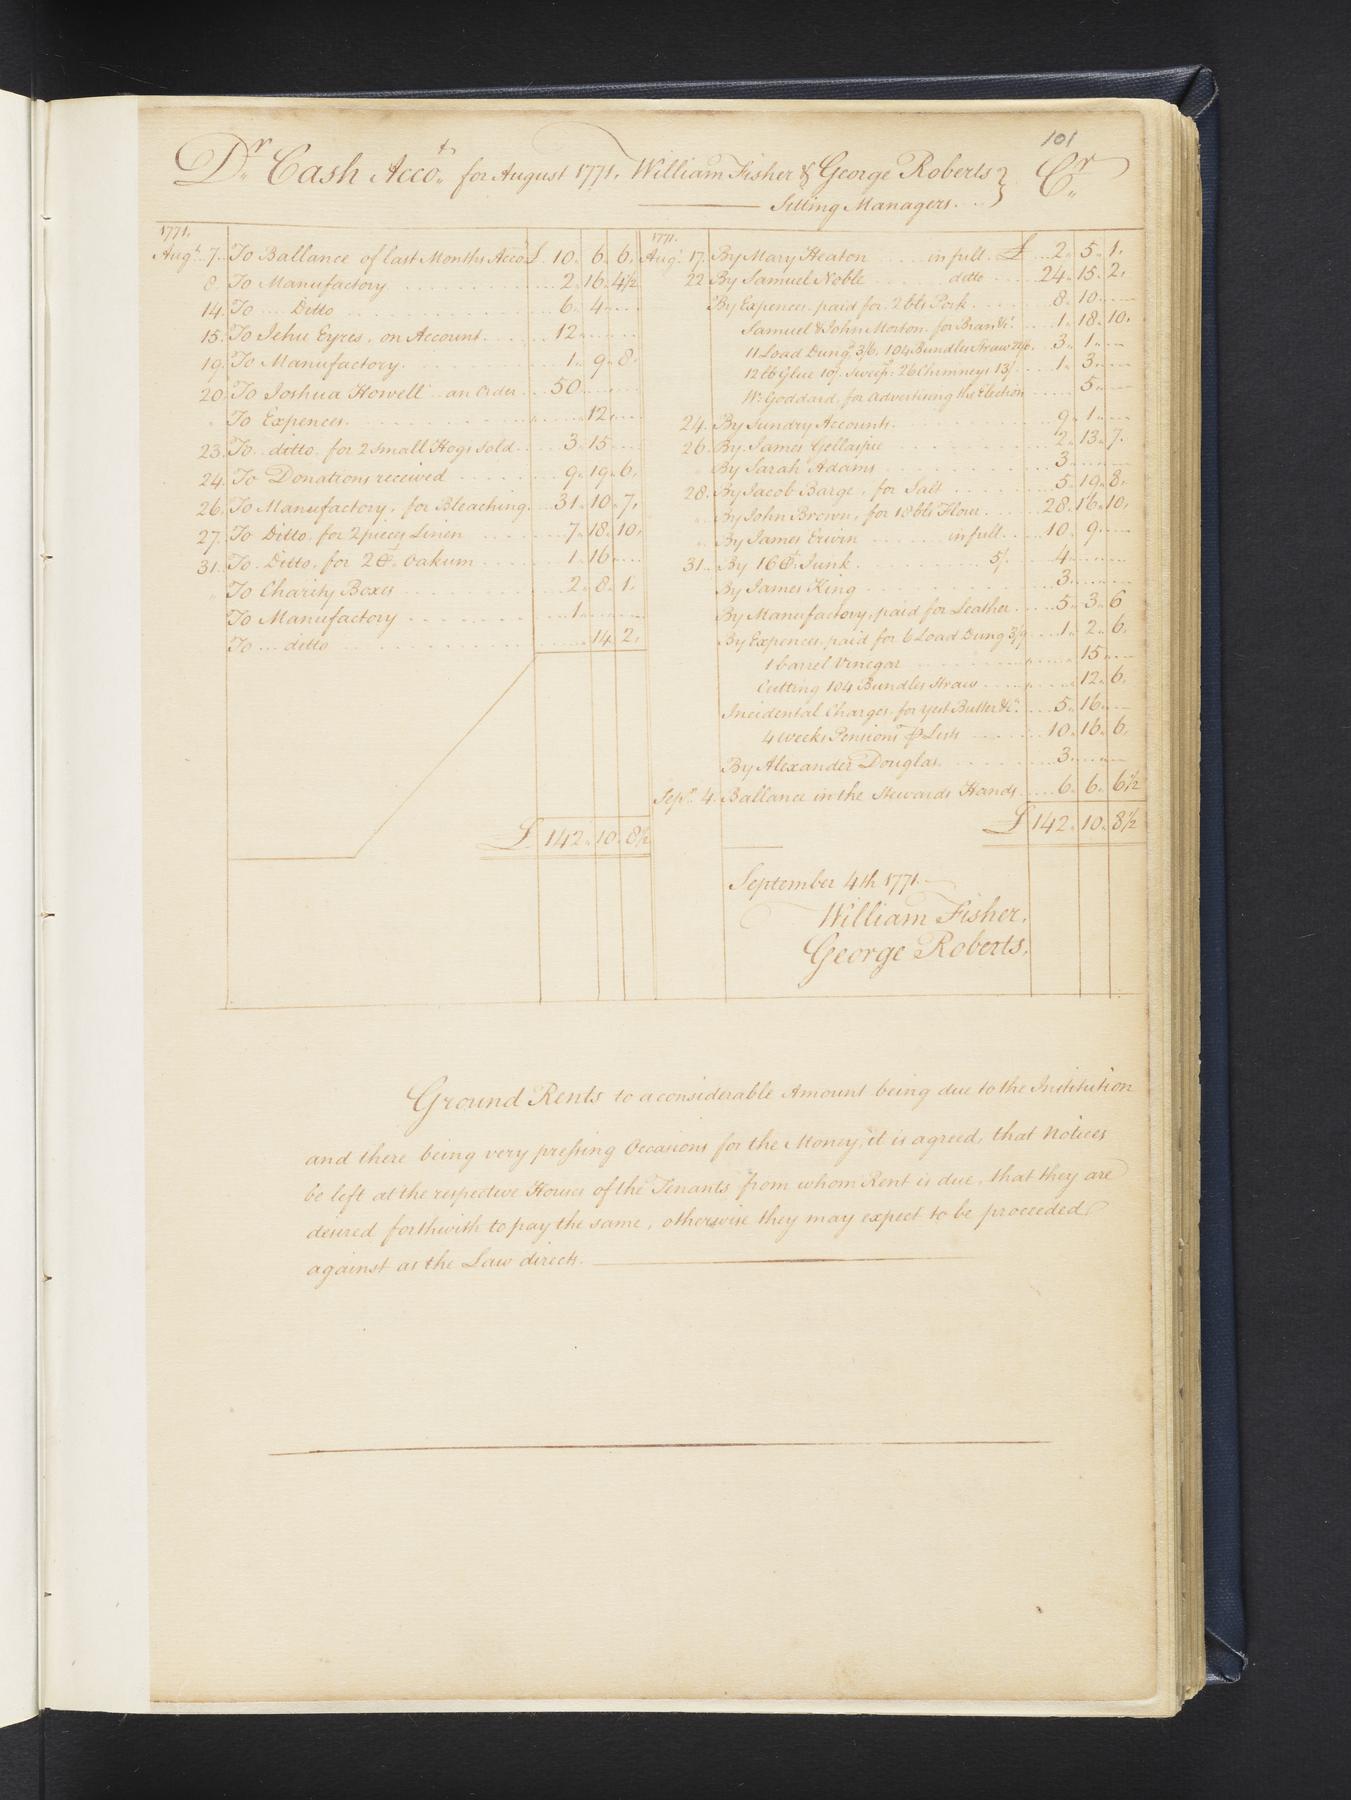 101
Dr. Cash Accot. for August 1771. William Fisher & George Roberts } Cr.
Sitting Managers.
1771.
Augt. 7. To Ballance of last Months Accot. £ 10. 6. 6.
8. To Manufactory 2. 16. 4½
14. To Ditto 6. 4
15. To Jehu Eyres, on Account. 12
19. To Manufactory. 1. 9. 8.
20. To Joshua Howell an Order 50
" To Expences. 12
23. To ditto for 2 small Hogs sold 3. 15
24. To Donations received 9. 19. 6.
26. To Manufactory, for Bleaching. 31. 10. 7.
27. To Ditto, for 2 pieces Linen 7. 18. 10.
31. To Ditto, for 2 Ct. Oakum 1. 16
" To Charity Boxes 2. 8. 1.
To Manufactory 1
To ditto 14. 2.
£ 142. 10. 8½
1771.
Augt. 17. By Mary Heaton in full. £ 2. 5. 1.
22 By Samuel Noble ditto 24. 15. 2.
By Expences paid for 2 bls Pork 8. 10
Samuel & John Morton for Bran &c. 1. 18. 10.
11 Load Dung 3/6, 104 Bundles Straw 3. 1
12 lb Glue 10/. Sweepg. 26 Chimneys 13/ 1. 3
Wm. Goddard, for advertising the Election 5
24. By Sundry Accounts. 9. 1
26. By James Gellaspie 2. 13. 7.
By Sarah Adams 3
28. By Jacob Barge, for Salt 5. 19. 8.
" By John Brown, for 18 bls Flour 28. 16. 10.
" By James Erwin in full 10. 9
31. By 16 Ct. Junk. 5/. 4
By James King 3
By Manufactory, paid for Leather 5. 3. 6
By Expences, paid for 6 Load Dung 3/9 1. 2. 6.
1 barrel Vinegar 15
Cutting 104 Bundles Straw 12. 6.
Incidental Charges, for yest Butter &c. 5. 16
4 weeks Pensions ⅌ Lists 10. 16. 6.
By Alexander Douglas. 3
Sepr. 4. Ballance in the Stewards Hands 6. 6. 6½
£ 142. 10. 8½
September 4th 1771.
William Fisher.
George Roberts.
Ground Rents to a considerable Amount being due to the Institution
and there being very pressing Occasions for the Money, it is agreed, that Notices
be left at the respective Houses of the Tenants from whom Rent is due, that they are
desired forthwith to pay the same, otherwise they may expect to be proceeded
against as the Law directs.